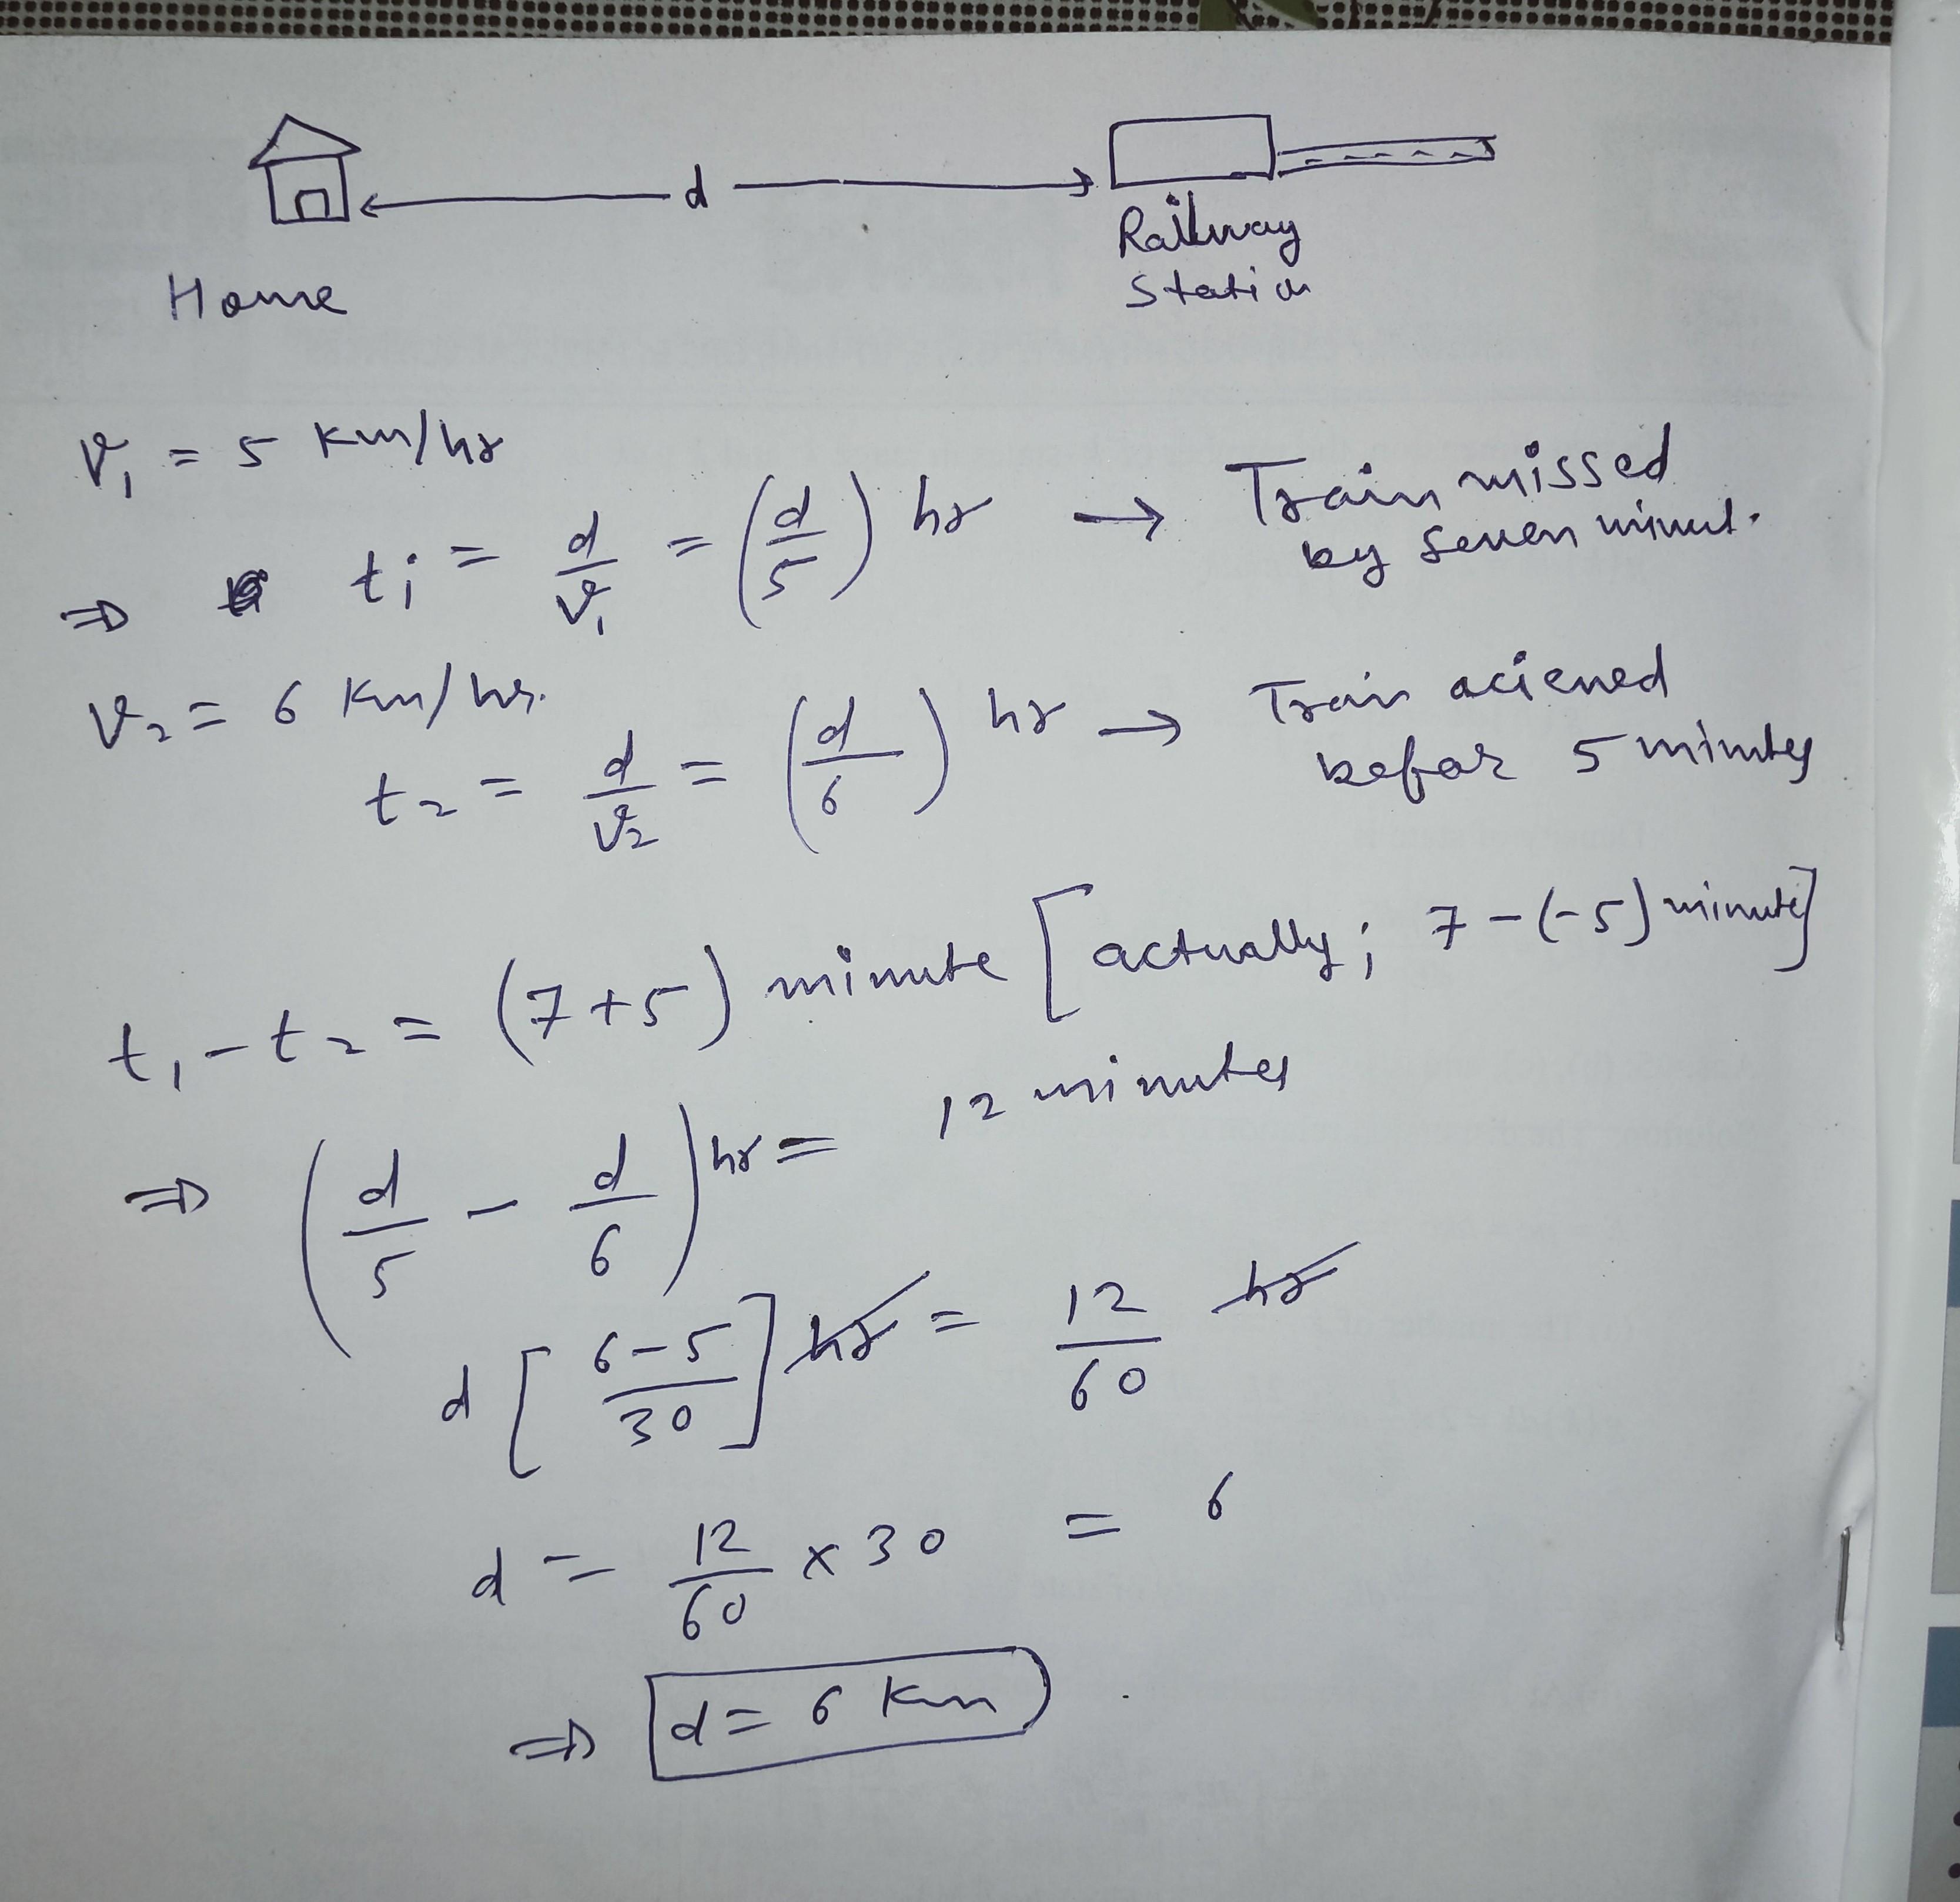 d
Home
Railway
Station
V₁ = 5 Km/hr
⇒ t₁ = d/V₁ = (d/5) hr → Train missed
by seven minut.
V₂ = 6 Km/hr.
t₂ = d/V₂ = (d/6) hr → Train acieved
befor 5 minutes
t₁ - t₂ = (7+5) minute [actually; 7-(-5) minute]
⇒ (d/5 - d/6) hr = 12 minutes
d [6-5/30] hr = 12/60 hr
d = 12/60 × 30 = 6
⇒ d = 6 Km